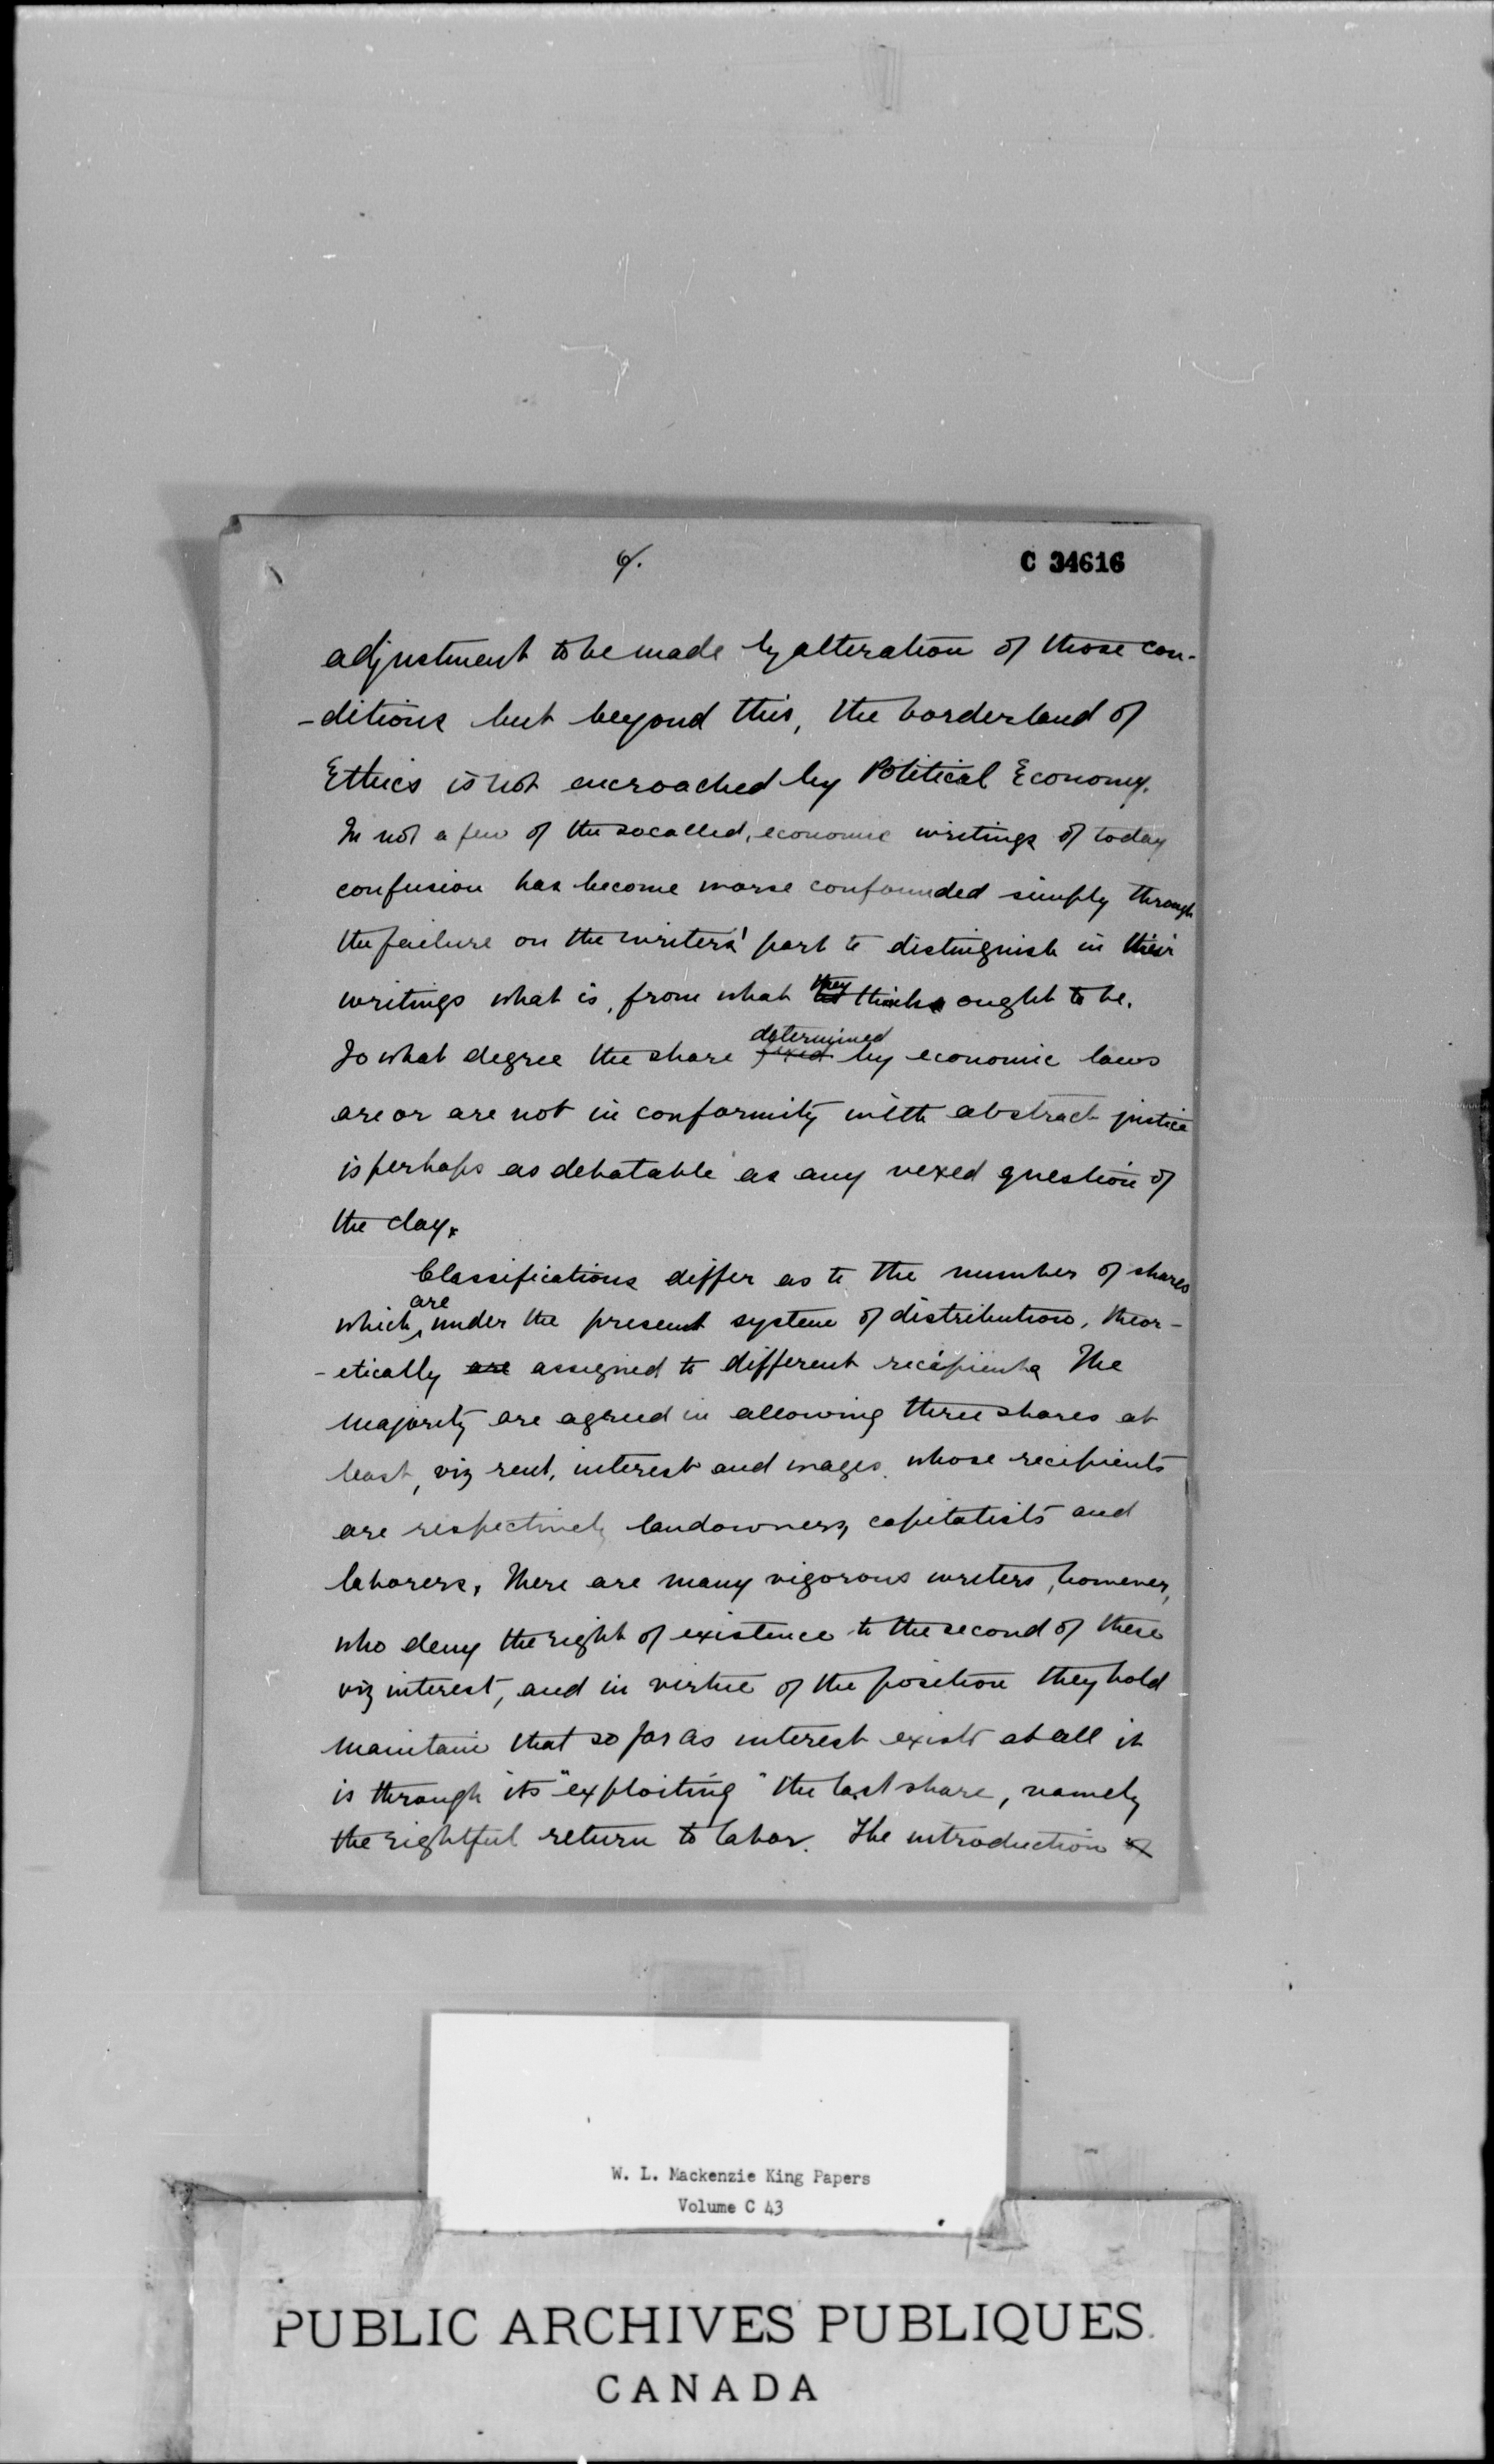 4.
C 34616
adjustment to be made by alteration of those con-
-ditions but beyond this, the borderland of
Ethics is not encroached by Political Economy.
In not a few of the socalled, economic writings of today
confusion has become worse confounded simply through
the failure on the writers' part to distinguish in their
writings what is, from what they think ought to be.
To what degree the share determined by economic laws
are or are not in conformity with abstract justice
is perhaps as debatable as any vexed question of
the day.
Classifications differ as to the number of shares
which are under the present system of distribution, theor-
-etically are assigned to different recipients. The
majority are agreed in allowing three shares at
least, viz rent, interest and wages. whose recipients
are respectively landowners, capitalists and
laborers. There are many vigorous writers, however,
who deny the right of existence to the second of these
viz interest, and in virtue of the position they hold
maintain that so far as interest exists at all it
is through its "exploiting" the last share, namely
the rightful return to labor. The introduction of
W. L. Mackenzie King Papers
Volume C 43
PUBLIC ARCHIVES PUBLIQUES
CANADA